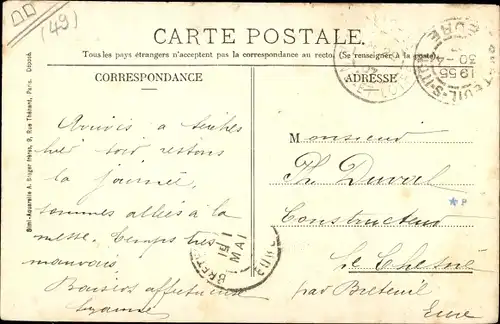 (49)
CARTE POSTALE.
Tous les pays étrangers n'acceptent pas la correspondance au recto. (Se renseigner à la poste).
CORRESPONDANCE
ADRESSE
Simi-Aquarelle A. Breger frères, 9, Rue Thénard, Paris. Déposé
Arrivés à
hier soir restons
la journée,
sommes allés à la
messe. Temps très
mauvais
Baisers affectueux
Monsieur
Ph. Duval
Constructeur
Le Chesne
par Breteuil
Eure
19 55
30 - 4
EURE
BRETEUIL
15 1
MAI
EURE